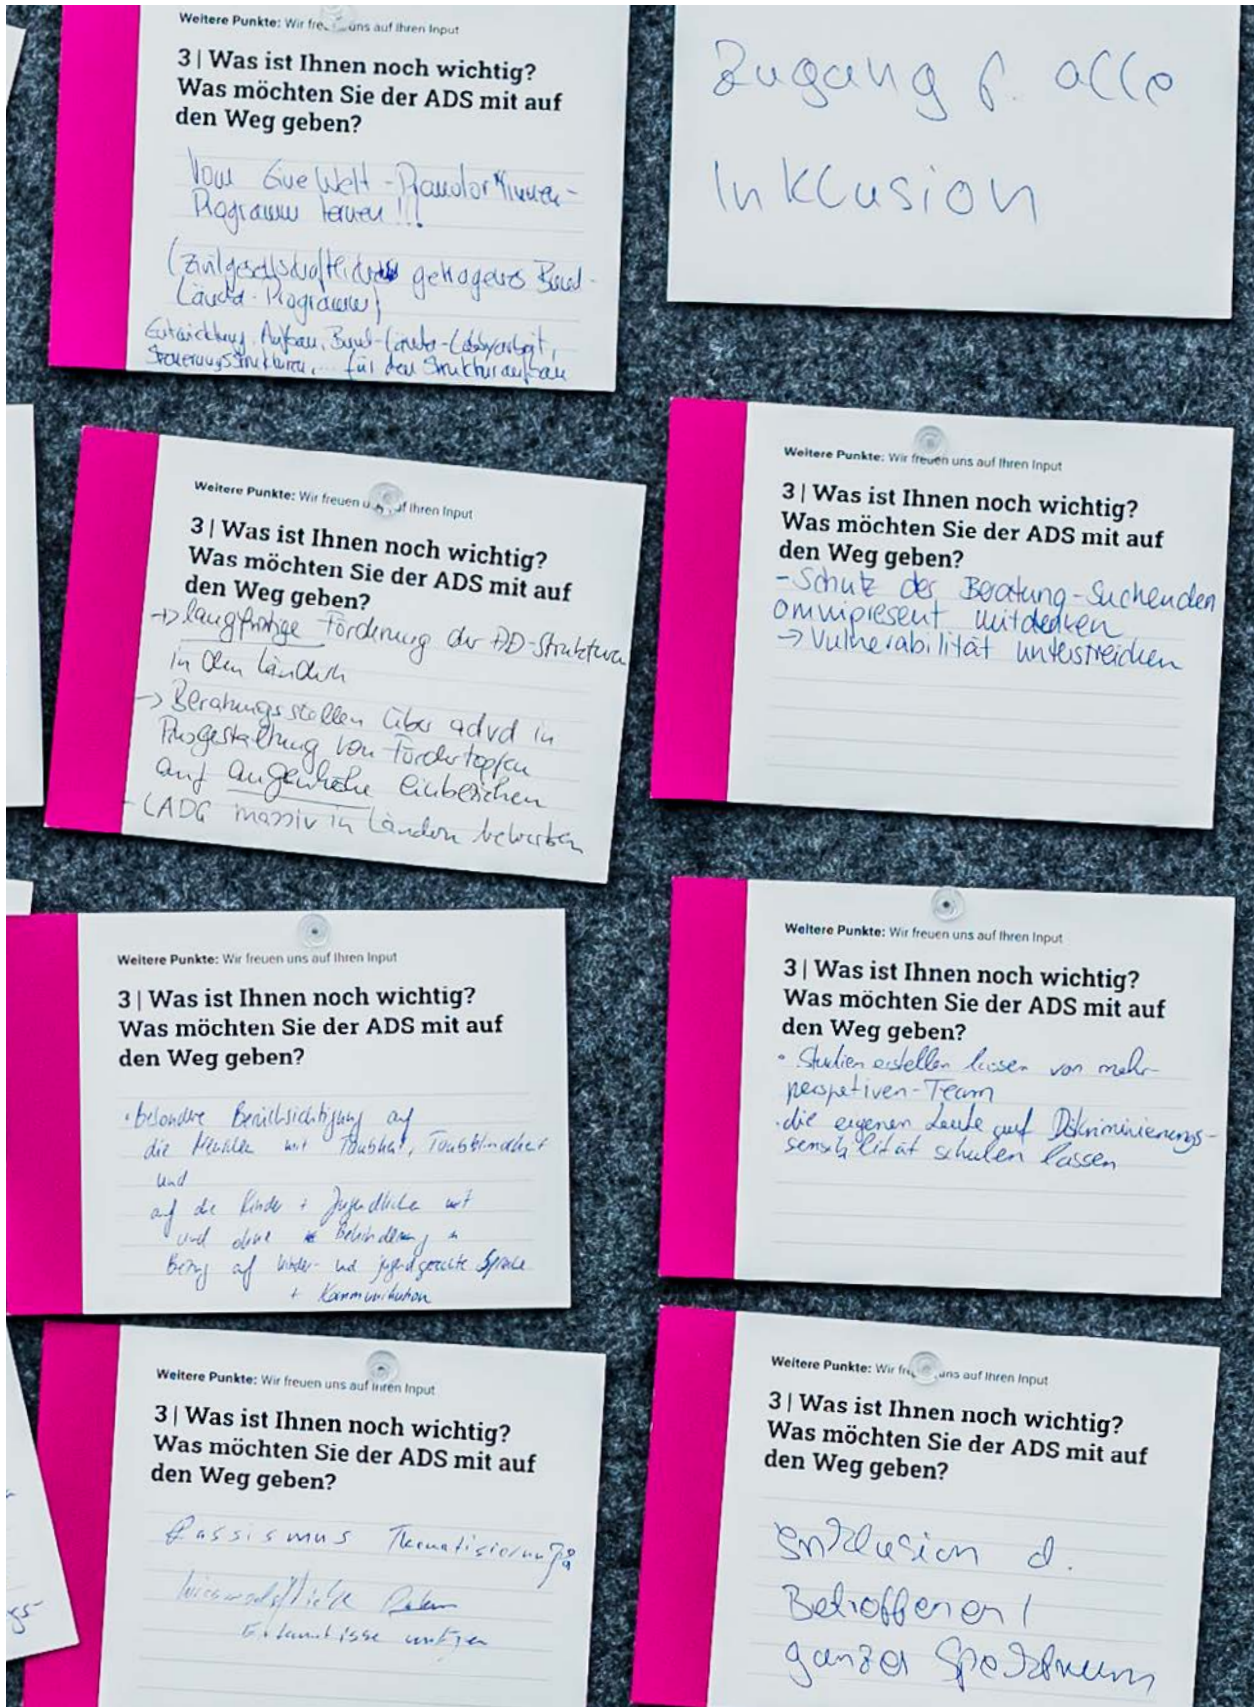 Weitere Punkte: Wir freuen uns auf Ihren Input
3 | Was ist Ihnen noch wichtig?
Was möchten Sie der ADS mit auf
den Weg geben?
Vom Eine Welt-Promotor*innen-
Programm lernen!!!
(zivilgesellschaftliches getragenes Bund-
Länder-Programm)
Entwicklung, Aufbau, Bund-Länder-Lobbyarbeit,
Steuerungsstrukturen, ... für den Strukturaufbau
Zugang f. alle
Inklusion
Weitere Punkte: Wir freuen uns auf Ihren Input
3 | Was ist Ihnen noch wichtig?
Was möchten Sie der ADS mit auf
den Weg geben?
-> langfristige Förderung der AD-Strukturen
in den Ländern
-> Beratungsstellen über advd in
Ausgestaltung von Fördertöpfen
auf Augenhöhe einbeziehen
- LADG massiv in Ländern bewerben
Weitere Punkte: Wir freuen uns auf Ihren Input
3 | Was ist Ihnen noch wichtig?
Was möchten Sie der ADS mit auf
den Weg geben?
- Schutz der Beratung-Suchenden
omnipresent mitdenken
-> Vulnerabilität unterstreichen
Weitere Punkte: Wir freuen uns auf Ihren Input
3 | Was ist Ihnen noch wichtig?
Was möchten Sie der ADS mit auf
den Weg geben?
• besondere Berücksichtigung auf
die Menschen mit Taubheit, Taubblindheit
und
auf die Kinder + Jugendliche mit
und ohne Behinderung in
Bezug auf kinder- und jugendgerechte Sprache
+ Kommunikation
Weitere Punkte: Wir freuen uns auf Ihren Input
3 | Was ist Ihnen noch wichtig?
Was möchten Sie der ADS mit auf
den Weg geben?
• Studien erstellen lassen von mehr-
perspetiven-Team
• die eigenen Leute auf Diskriminierungs-
sensibilität schulen lassen
Weitere Punkte: Wir freuen uns auf Ihren Input
3 | Was ist Ihnen noch wichtig?
Was möchten Sie der ADS mit auf
den Weg geben?
Rassismus Thematisierung
wissenschaftliche Daten
Erkenntnisse nutzen
Weitere Punkte: Wir freuen uns auf Ihren Input
3 | Was ist Ihnen noch wichtig?
Was möchten Sie der ADS mit auf
den Weg geben?
Inklusion d.
Betroffenen /
ganzes Spektrum